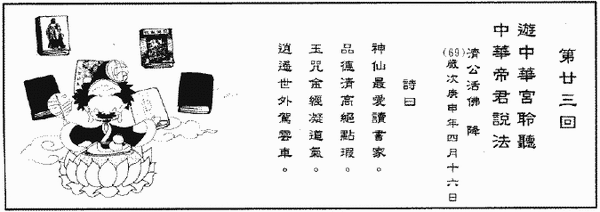 第廿三回
遊中華宮聆聽
中華帝君說法
濟公活佛 降
(69)歲次庚申年四月十六日
詩曰
神仙最愛讀書家。
品德清高絕點瑕。
玉咒金經凝道氣。
逍遙世外駕雲車。